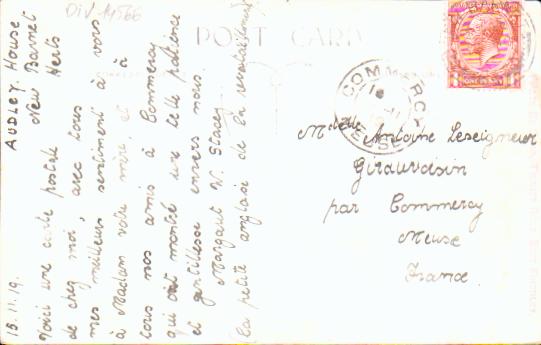 DIV-14566
POST CARD
AUDLEY. House
New Barnet
Herts
15.11.19.
Voici une carte postale
de chez moi, avec tous
mes meilleurs sentiments à vous
à Madam votre mère, et à
tous nos amis à Commercy
qui ont montré une telle patience
et gentillesse envers nous
Margaret W. Stacey
(la petite anglaise de la
COMMERCY
MEUSE
ONE PENNY
Mdelle Antoine Leseigneur
Girauvoisin
par Commercy
Meuse
France.